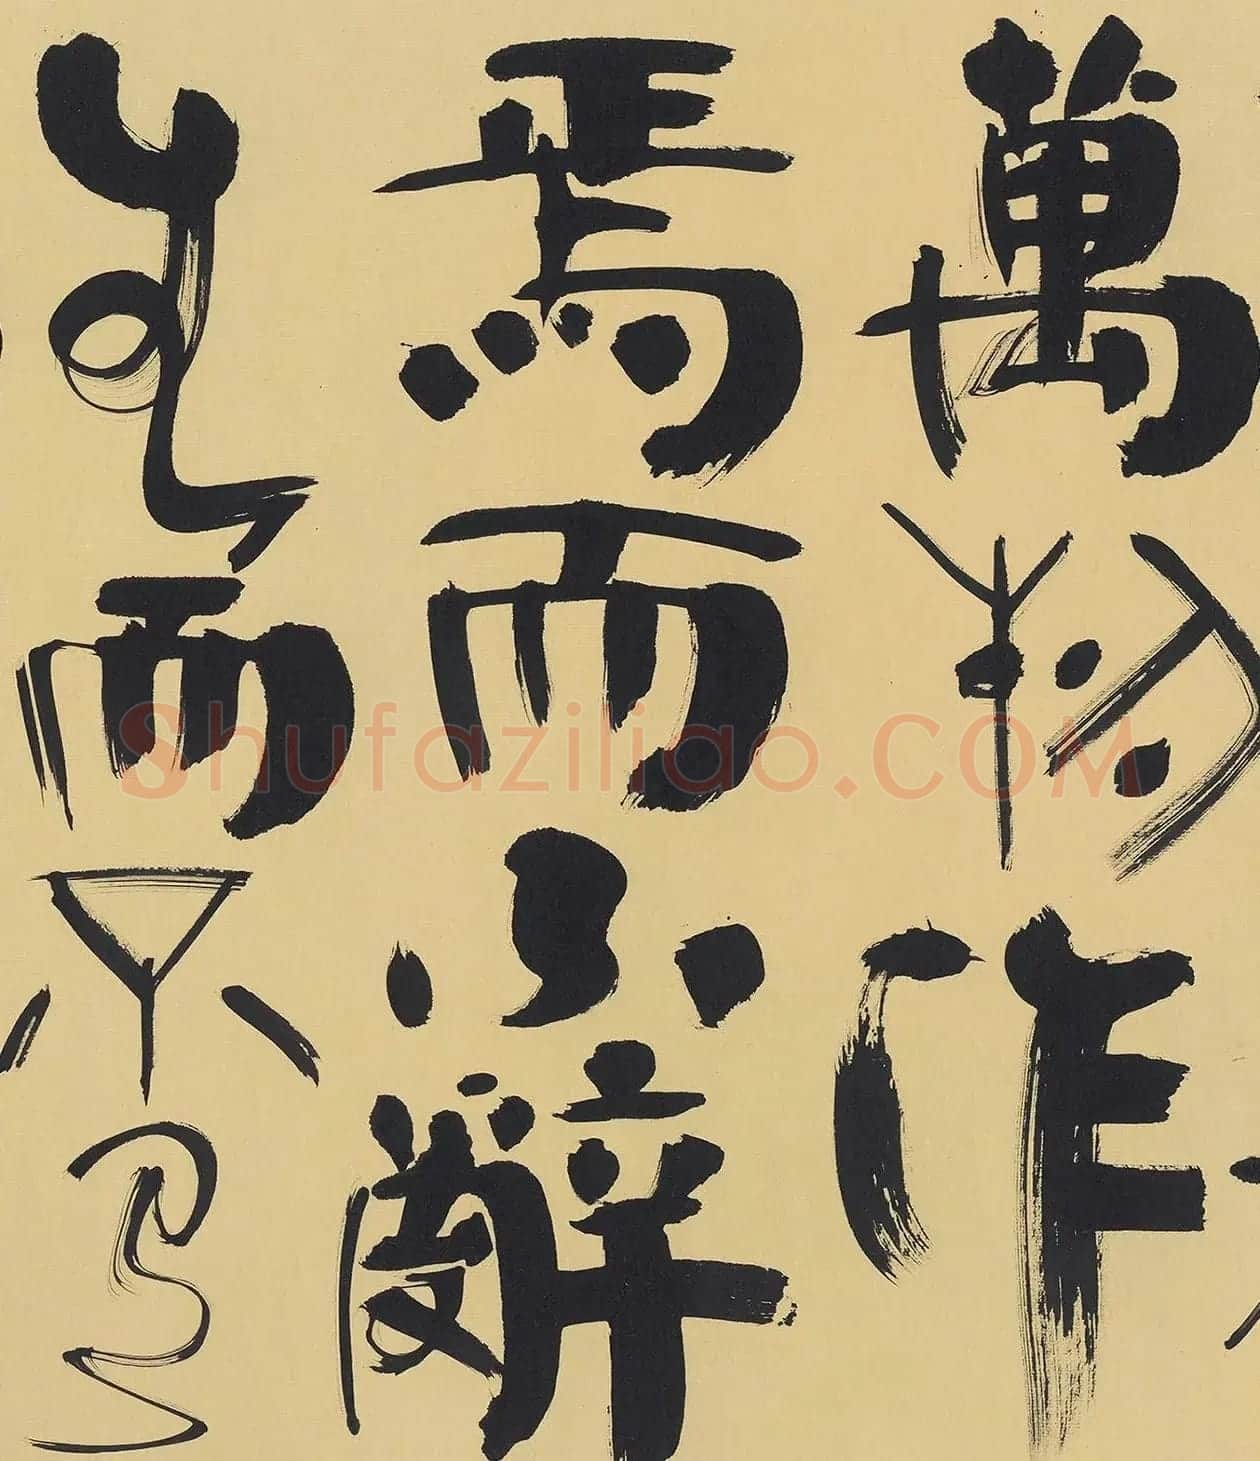 萬物作
焉而不辭
生而不有
Shufaziliao.COM